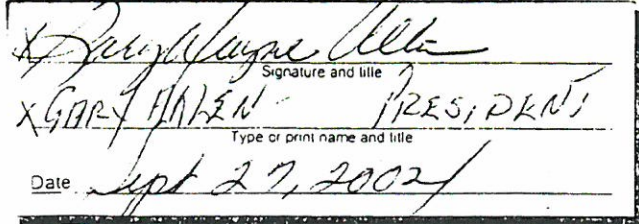 X Gary Wayne Allen
Signature and title
X GARY ALLEN - PRESIDENT
Type or print name and title
Date Sept 27, 2002